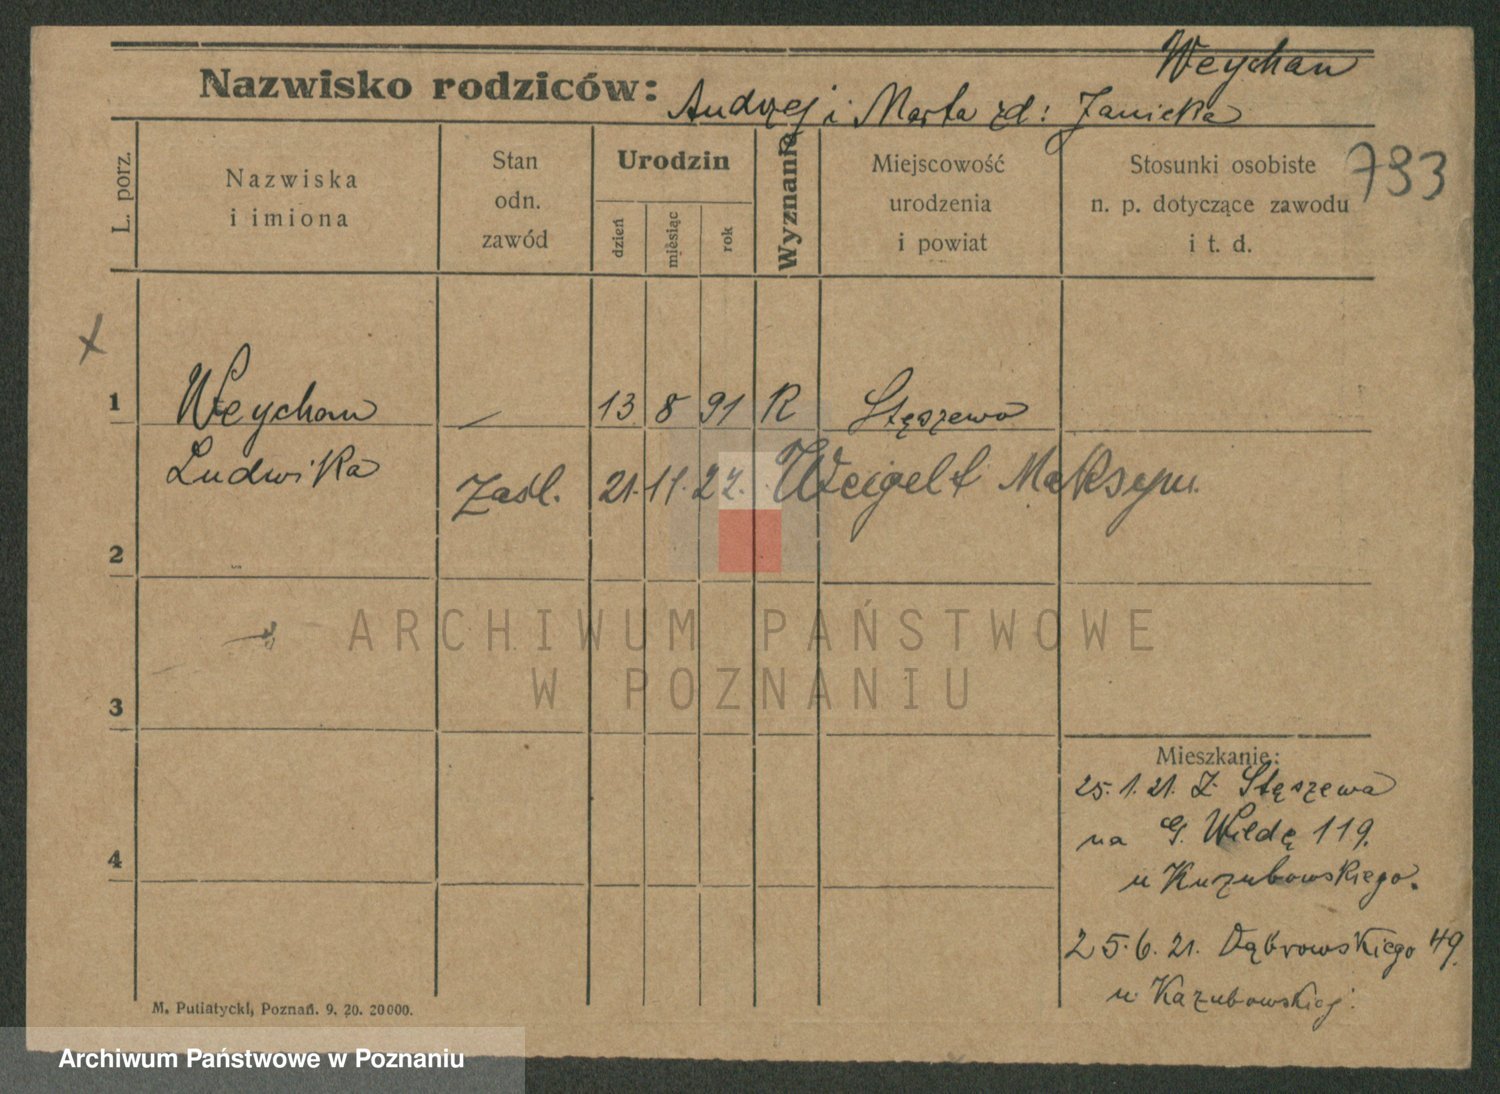 Weychan
Nazwisko rodziców: Andrzej i Marta zd: Janicka
L. porz.
Nazwiska
i imiona
Stan
odn.
zawód
Urodzin
dzień
miesiąc
rok
Wyznanie
Miejscowość
urodzenia
i powiat
Stosunki osobiste
n. p. dotyczące zawodu
i t. d.
793
x
1 Weychan — 13 8 91 R Stęszewo
Ludwika Zaśl. 21. 11. 22. Weigelt Maksym.
2
3
Mieszkanie:
25. 1. 21. Z Stęszewa
na G. Wildę 119.
4
u Kuzubowskiego.
25. 6. 21. Dąbrowskiego 49.
u Kazubowskiej.
M. Putiatycki, Poznań. 9. 20. 20000.
ARCHIWUM PAŃSTWOWE
W POZNANIU
Archiwum Państwowe w Poznaniu